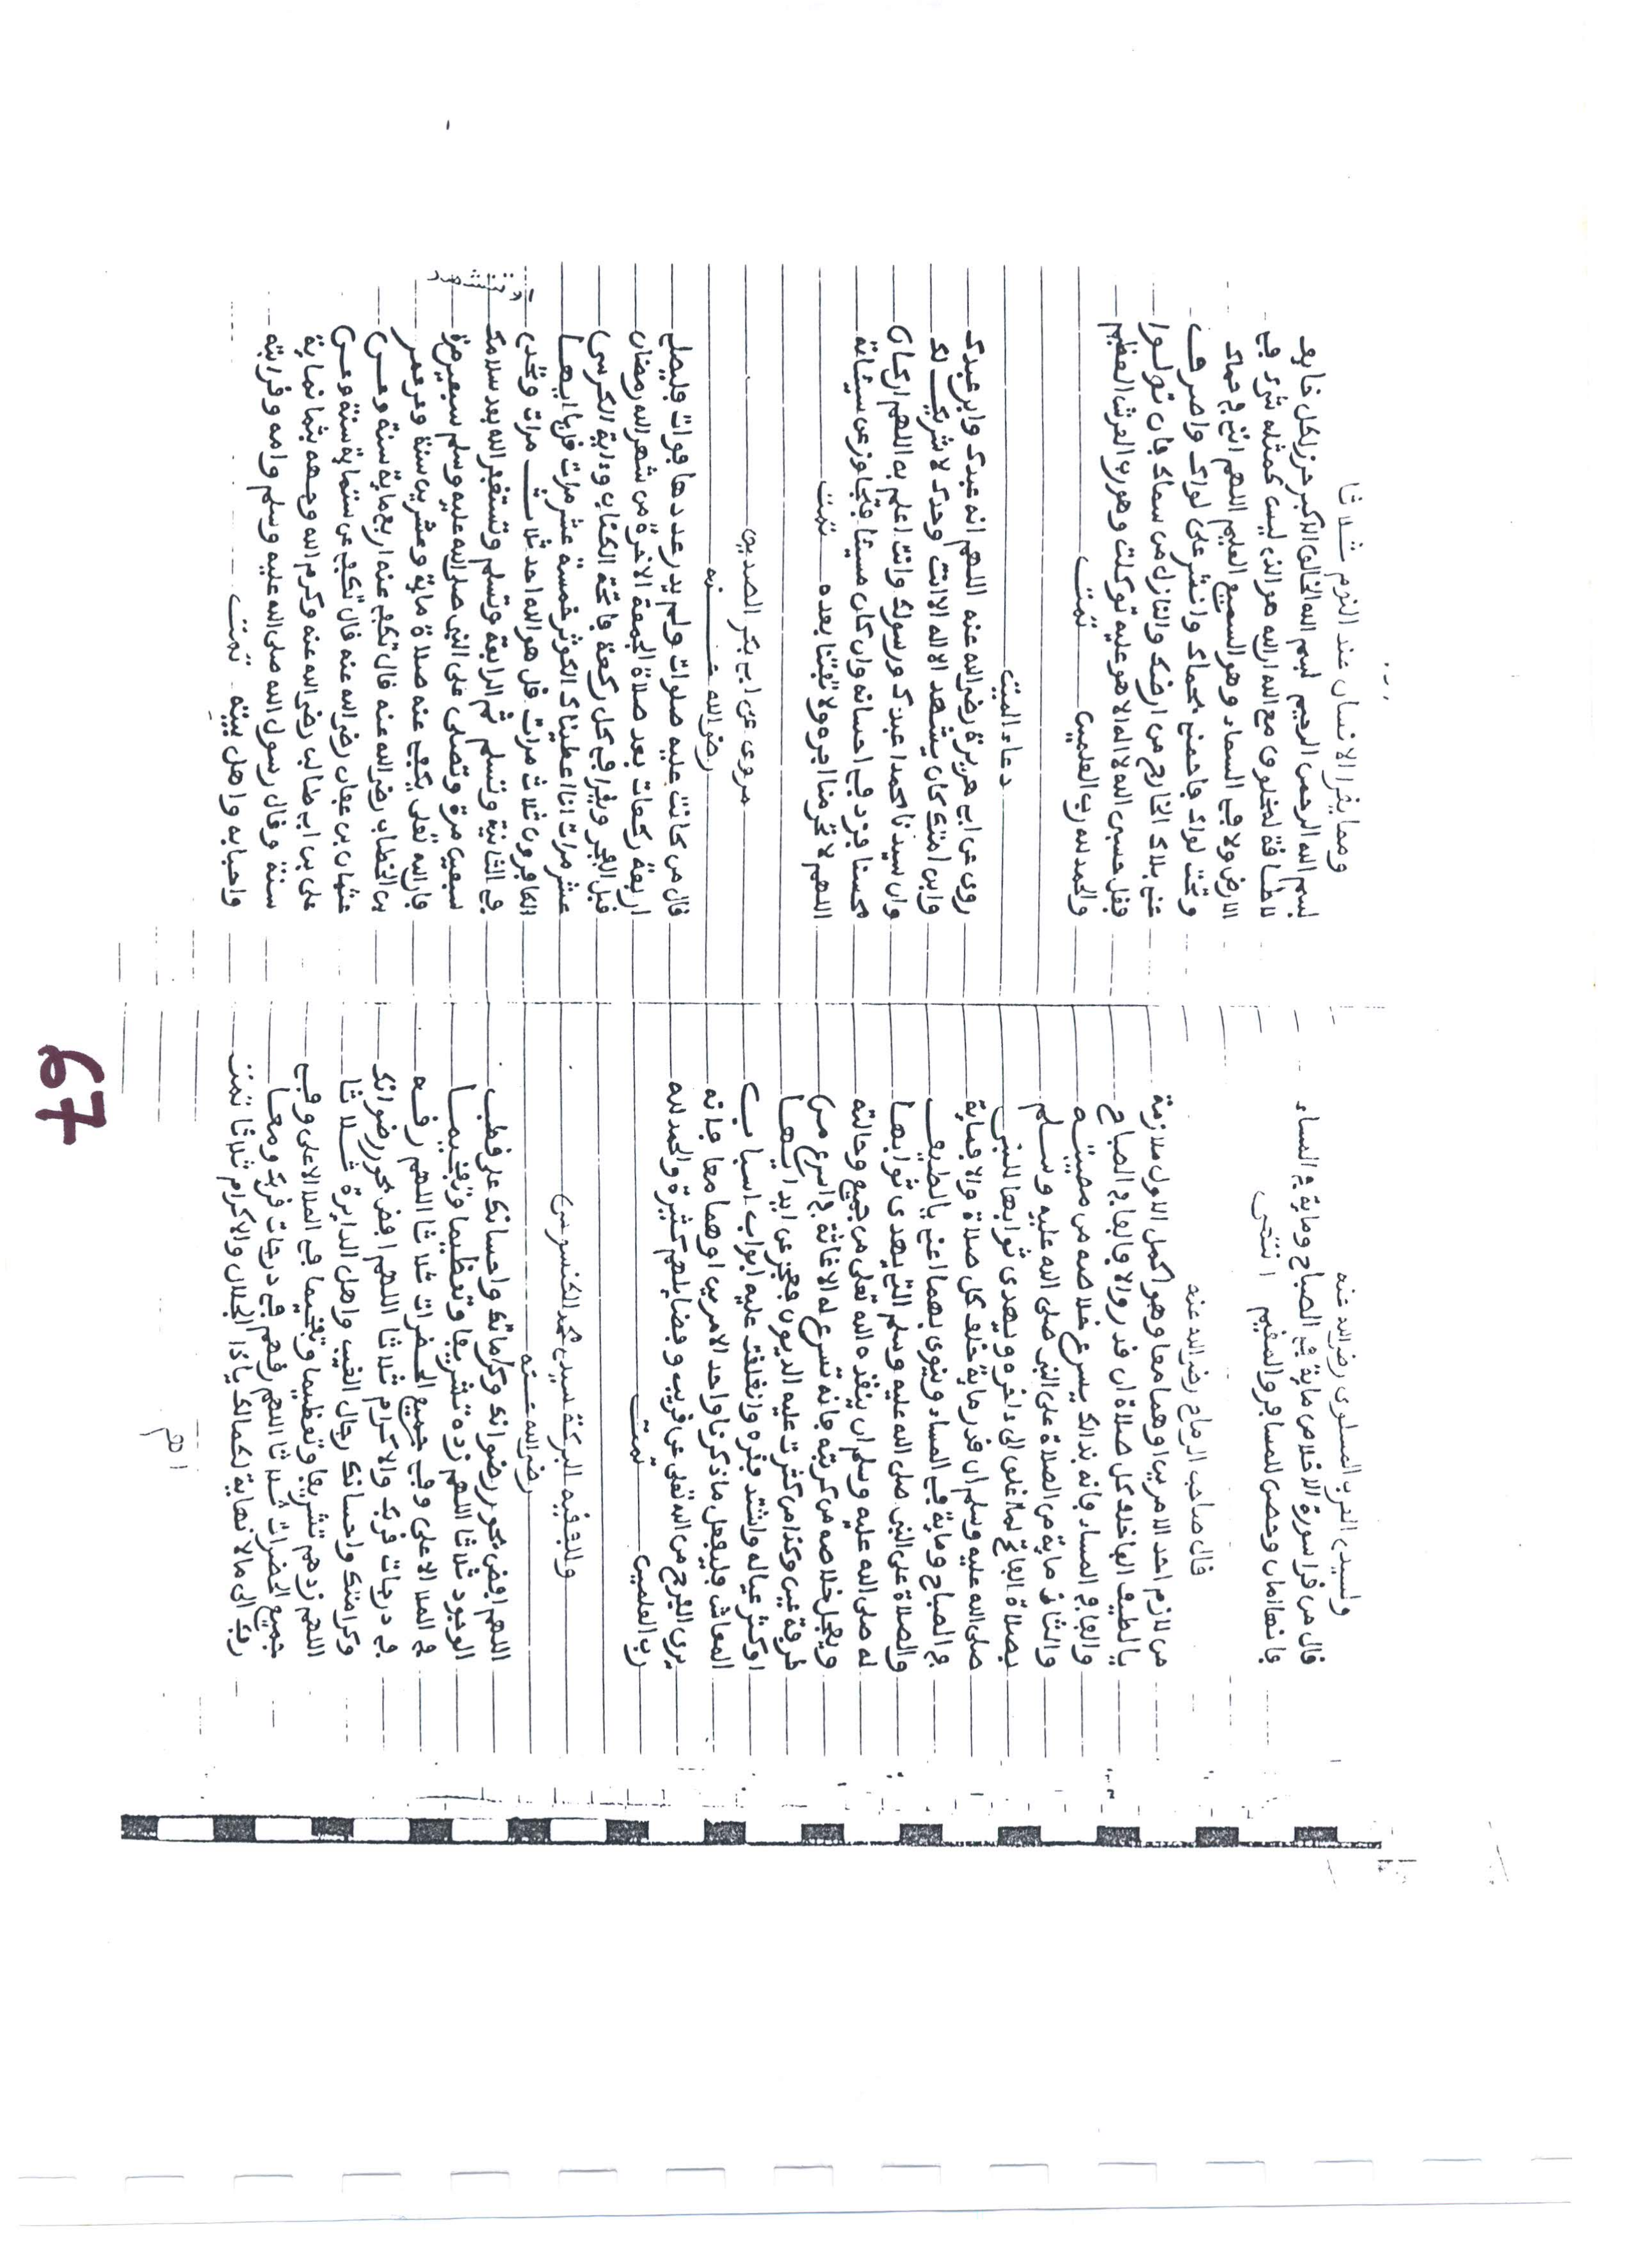 ولسيدى العرب رضي الله عنه
قال من قرا سورة الاخلاص ماية في الصباح وماية في المساء
فانها امان وحصن للمسافر والمقيم انتهى
قال صاحب الرماح رضي الله عنه
من لازم احد الامرين او هما معا وهو اكمل الاول ملازمة
يا لطيف الفا خلف كل صلاة ان قدر والا فالفا في الصباح
والفا في المساء فانه بذالك يسرع خلاصه من مصيبته
والثانى ماية من الصلاة على النبي صلى الله عليه وسلم
بصلاة الفاتح لما اغلق الى ءاخره ويهدى ثوابها للنبى
صلى الله عليه وسلم ان قدر ماية خلف كل صلاة والا فماية
في الصباح وماية في المساء وينوى بهما اعنى يا لطيف
والصلاة على النبي صلى الله عليه وسلم التى يهدى ثوابها
له صلى الله عليه وسلم ان ينقذه الله تعلى من جميع وحالته
ويجعل خلاصه من كربته فانه تسرع له الاغاثة في اسرع من
طرفة عين وكذا من كثرت عليه الديون وعجز عن ايدايها
او كثر عياله واشتد فقره وانغلقت عليه ابواب اسباب
المعاش فليفعل ماذكرنا واحد الامرين او هما معا فانه
يرى الفرج من الله تعلى عن قريب وفضايلهم كثيرة والحمد لله
رب العلمين تمت
وللفقيه البركة سيدى محمد اكنسوس
رضي الله عنه
اللهم افض بحور رضوانك وكراماتك واحسانك على قطب
الوجود ثلاثا اللهم زده تشريفا وتعظيما وتفخيما
في الملا الاعلى وفي جميع الحضرات ثلاثا اللهم رقه
في درجات قربك والاكرام ثلاثا اللهم افض بحور رضوانك
وكرامتك واحسانك رجال الغيب واهل الدايرة ثلاثا
اللهم زدهم تشريفا وتعظيما وتفخيما في الملا الاعلى وفي
جميع الحضرات ثلاثا اللهم رقهم في درجات قربك ومعا
ربك الى مالا نهاية لكمالك ياذا الجلال والاكرام ثلاثا تمت
اهم
ومما يقرا الانسان عند النوم ثلاثا
بسم الله الرحمن الرحيم بسم الله الخالق الاكبر حرز لكل خايف
لا طاقة لمخلوق مع الله الله هو الذى ليس كمثله شىء في
الارض ولا في السماء وهو السميع العليم اللهم انى في حماك
وتحت لوائك فاحمنى بحماك وانشر على لوائك واصرف
عنى بلاك الخارج من ارضك والنازل من سمائك فان تولوا
فقل حسبى الله لااله الا هو عليه توكلت وهو رب العرش العظيم
والحمد لله رب العلمين تمت
دعاء الميت
روى عن ابى هريرة رضي الله عنه اللهم انه عبدك وابن عبدك
وابن امتك كان يشهد الا اله الا انت وحدك لا شريك لك
وان سيدنا محمدا عبدك ورسولك وانت اعلم به اللهم ان كان
محسنا فزد في احسانه وان كان مسيئا فتجاوز عن سيئاته
اللهم لا تحرمنا اجره ولا تفتنا بعده تمت
مروى عن ابى بكر الصديق
رضي الله عنه
قال من كانت عليه صلوات ولم يدر عددها فوات فليصل
اربعة ركعات بعد صلاة الجمعة الاخرة من شهر الله رمضان
قبل الفجر ويقرا في كل ركعة فاتحة الكتاب وءاية الكرسى
عشر مرات انا اعطيناك الكوثر خمسة عشر مرات قل يا ايها
الكافرون ثلاث مرات قل هو الله احد ثلاث مرات وتتشهد
في الثانية وتسلم ثم الرابعة وتسلم وتستغفر الله بعد سلامك
سبعين مرة وتصلى على النبي صلى الله عليه وسلم سبعين مرة
فان الله تعلى يكفى عنه صلاة ماية وعشرين سنة وعن عمر
بن الخطاب رضي الله عنه قال تكفى عنه اربعماية سنة وعن
عثمان بن عفان رضي الله عنه قال تكفى عن ستماية سنة وعن
على بن ابى طالب رضي الله عنه وكرم الله وجهه بثمانماية
سنة وقال رسول الله صلى الله عليه وسلم وامه وقرابته
واحبابه واهل بيته تمت
67